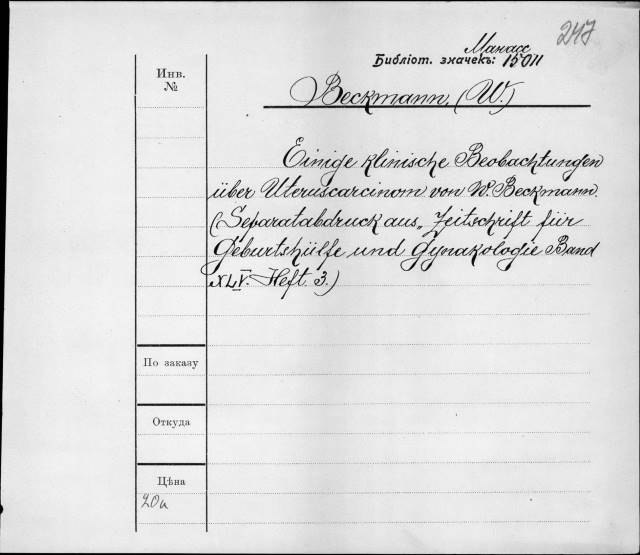 247
Манасс
Библіот. значекъ: 15011
Инв.
№
Beckmann, (W.)
Einige klinische Beobachtungen
über Uteruscarcinom von W. Beckmann.
(Separatabdruck aus „Zeitschrift für
Geburtshülfe und Gynakologie Band
XLV. Heft 3.)
По заказу
Откуда
Цѣна
20к